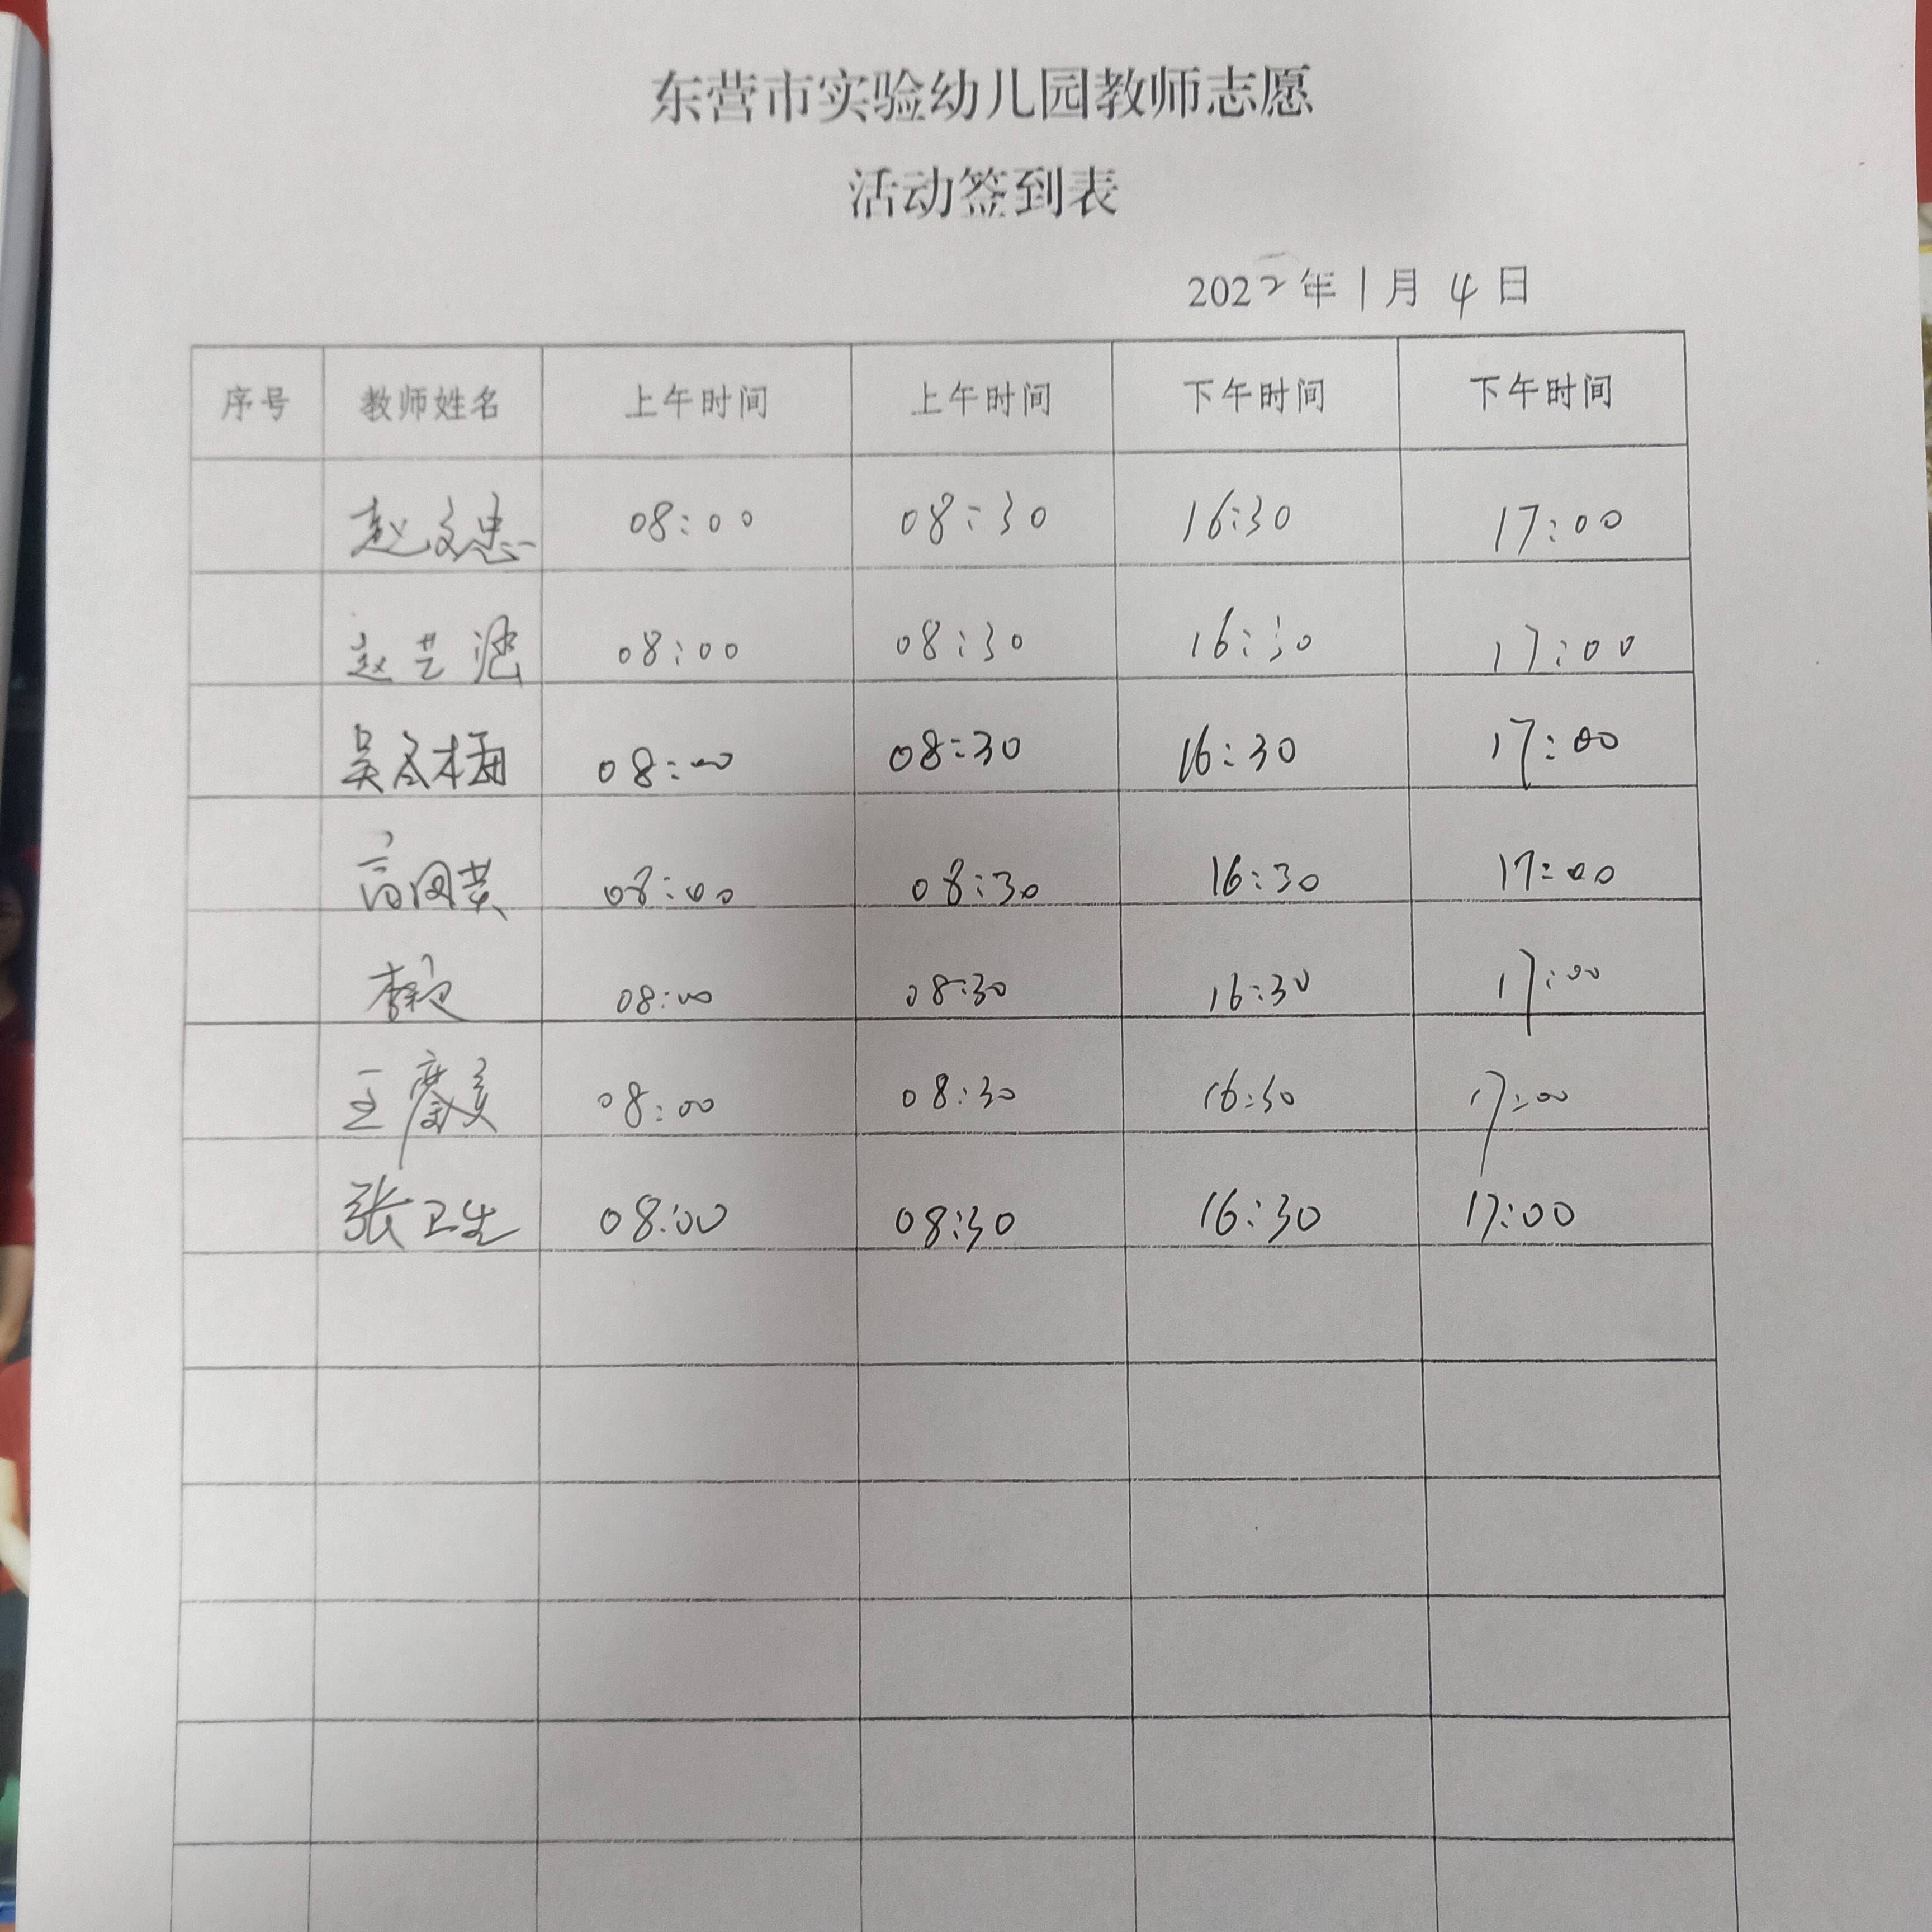 东营市实验幼儿园教师志愿
活动签到表
2022年1月4日
序号 教师姓名 上午时间 上午时间 下午时间 下午时间
赵文忠 08:00 08:30 16:30 17:00
赵艺涵 08:00 08:30 16:30 17:00
吴冬梅 08:00 08:30 16:30 17:00
高国英 08:00 08:30 16:30 17:00
李 08:00 08:30 16:30 17:00
王 08:00 08:30 16:30 17:00
张卫生 08:00 08:30 16:30 17:00